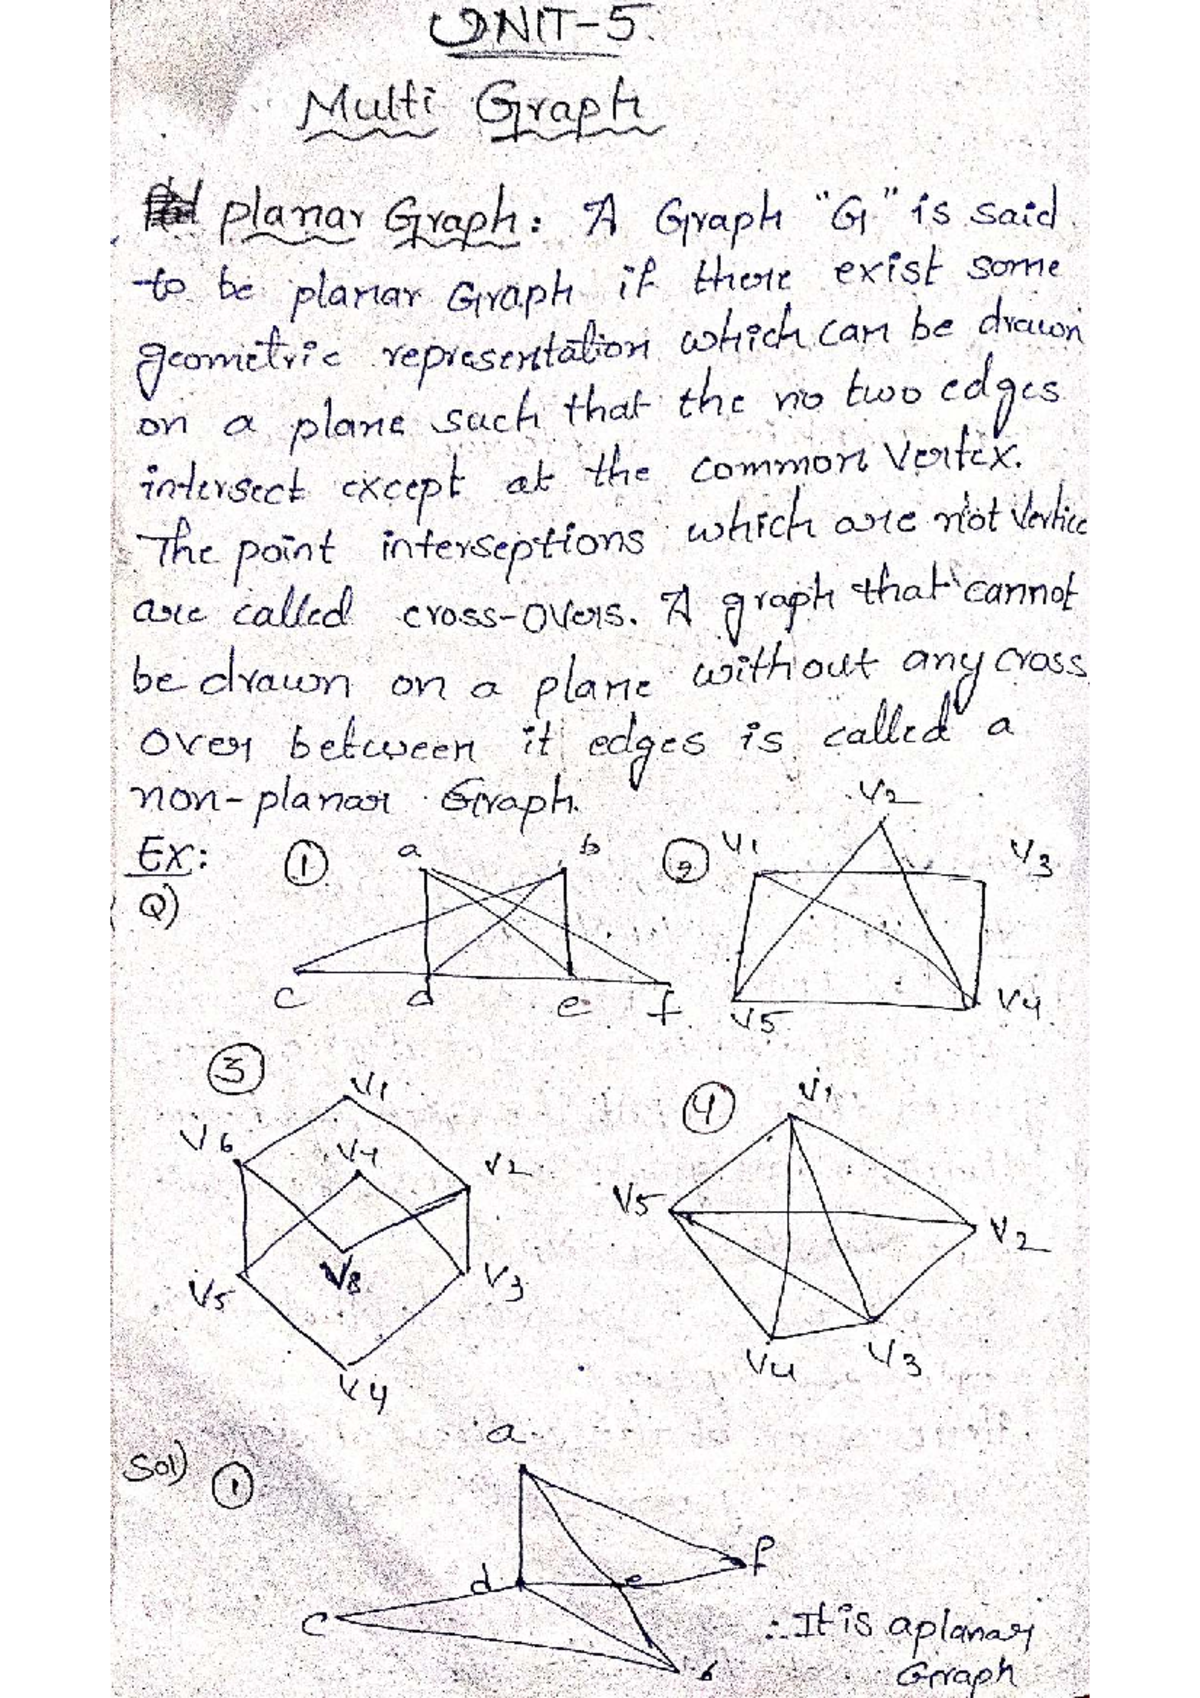 UNIT-5.
Multi Graph
planar Graph: A Graph "G" is said
to be planar Graph if there exist some
geometric representation which can be drawn
on a plane such that the no two edges
intersect except at the common Vertex.
The point interseptions which are not Vertice
are called cross-overs. A graph that cannot
be drawn on a plane without any cross
over between it edges is called a
non-planar Graph.
Ex:
Q)
1 a b c d e f
2 V1 V2 V3 V4 V5
3 V1 V6 V7 V2 V8 V5 V3 V4
4 V1 V5 V2 V4 V3
Sol) 1
a
f
d e
c
b
∴ It is a planar
Graph